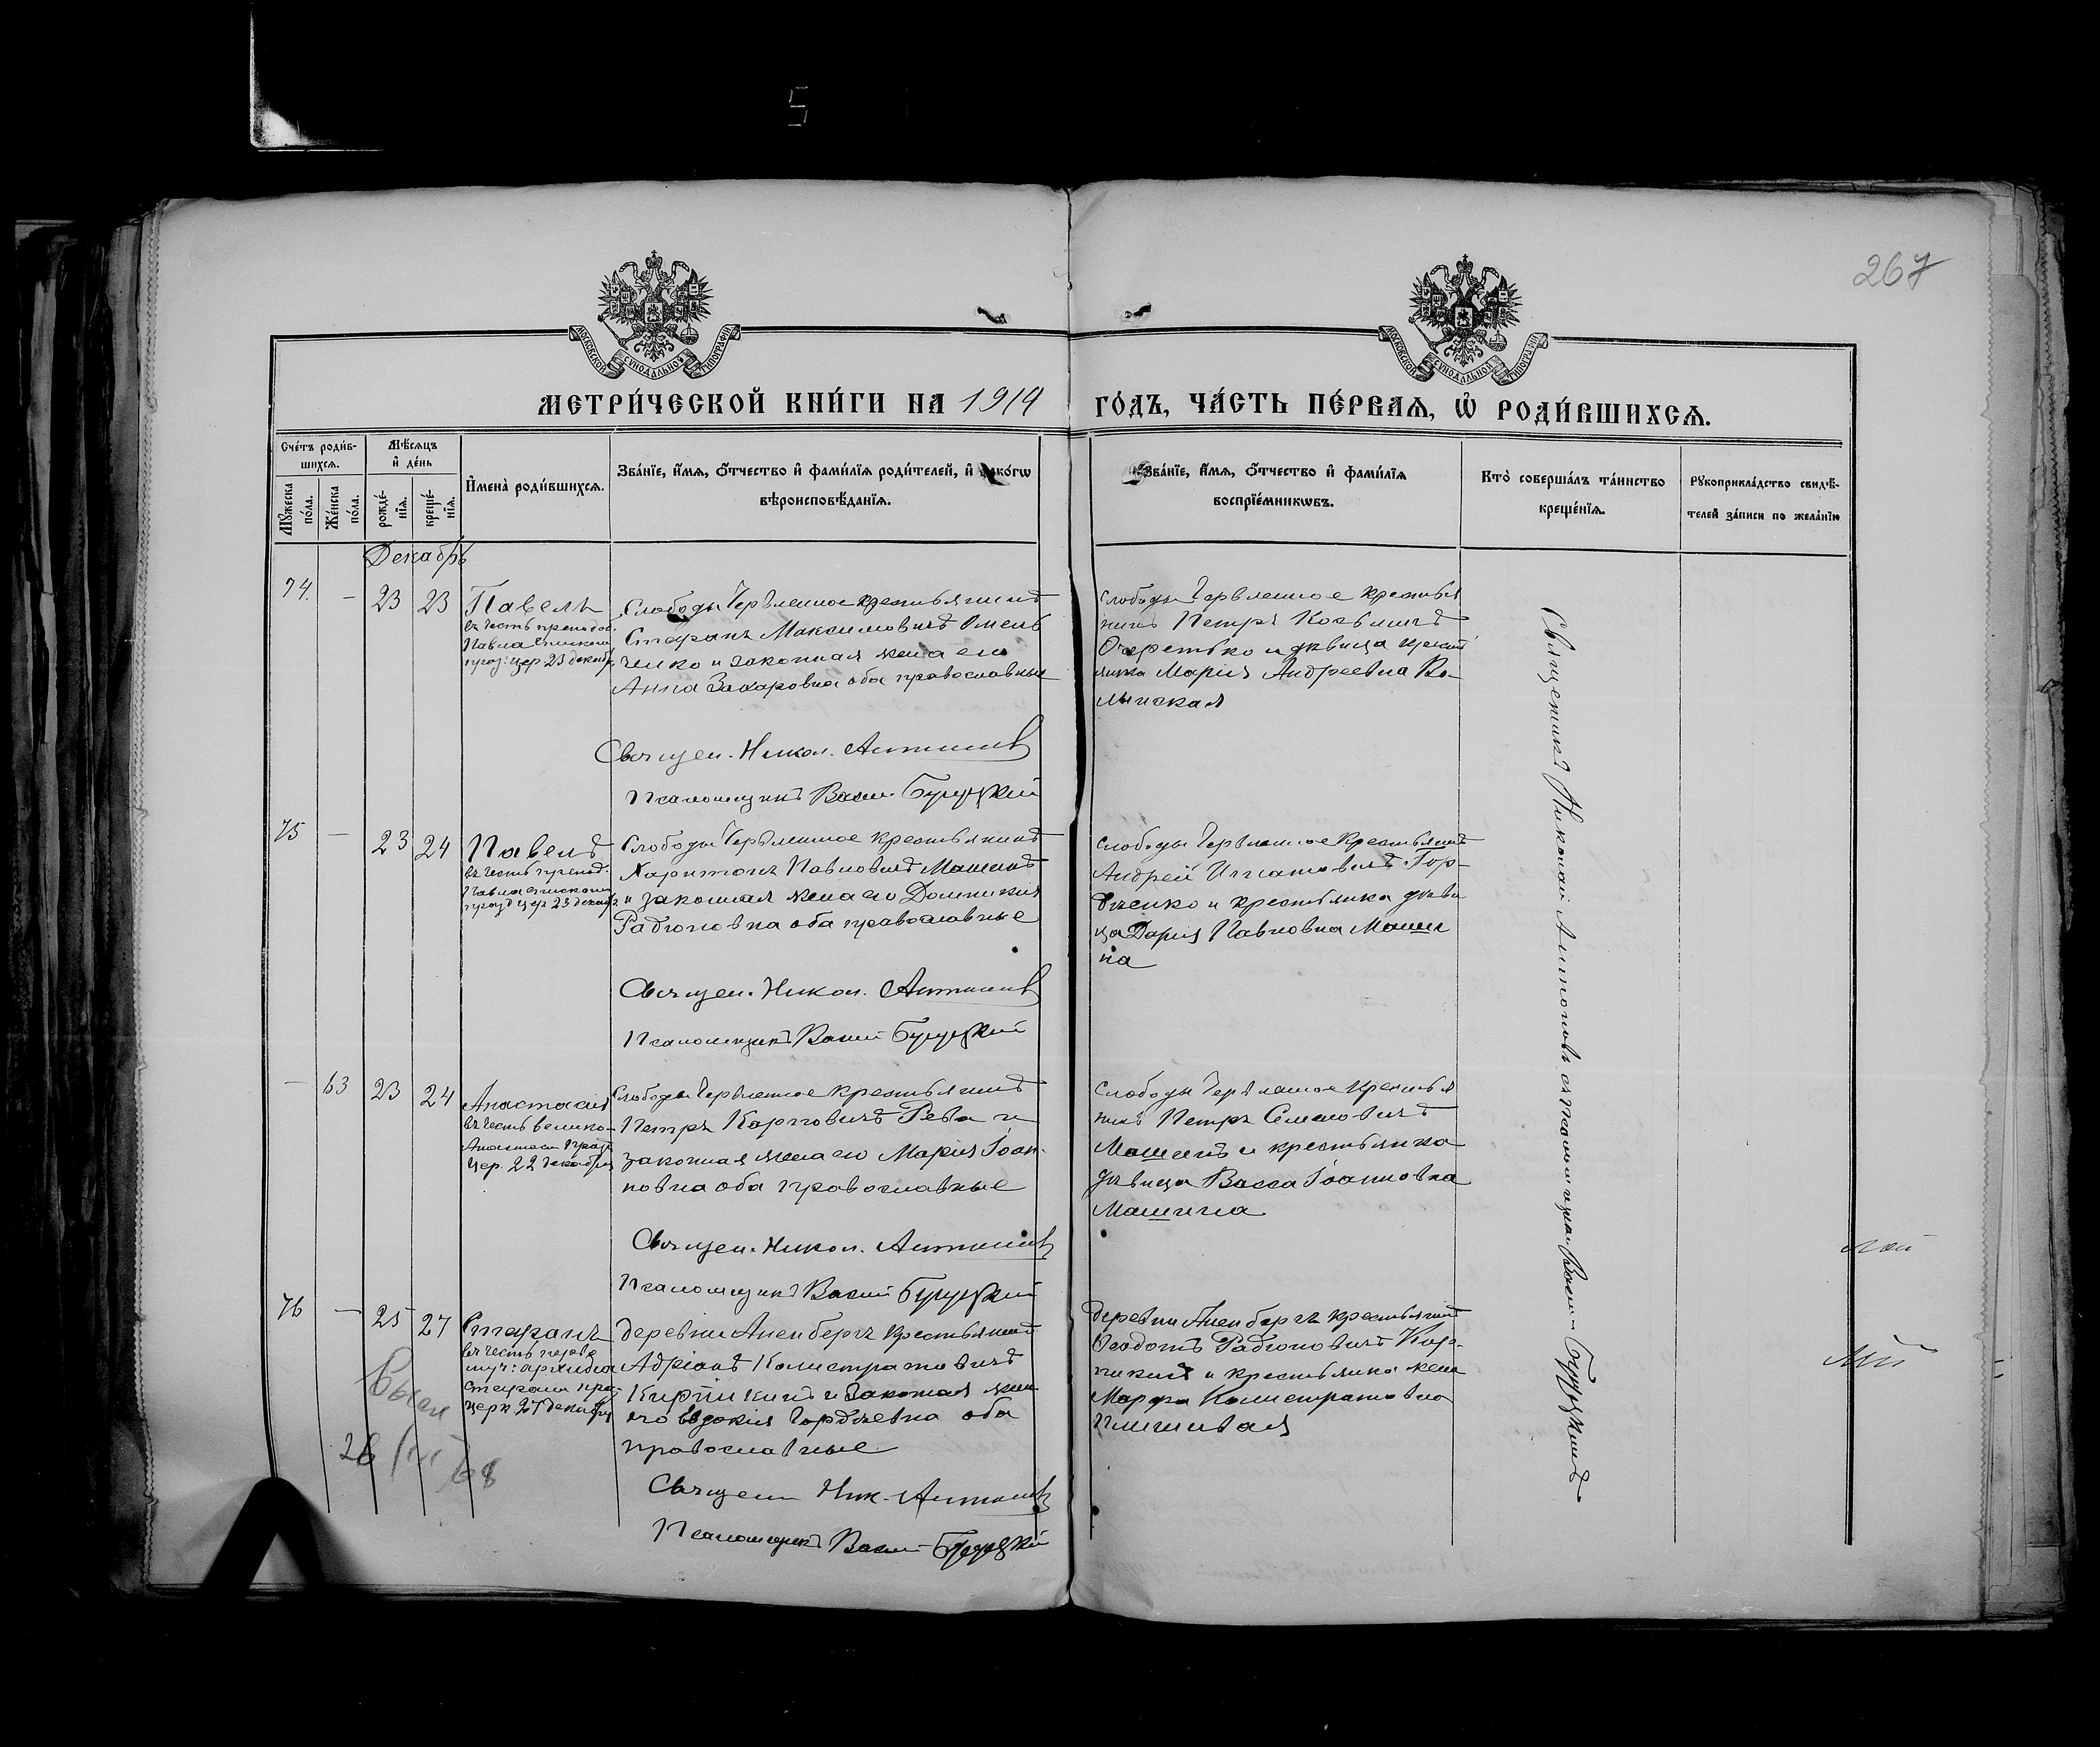 5
267
МОСКОВСКОЙ СУНОДАЛЬНОЙ ТИПОГРАФІИ
МОСКОВСКОЙ СУНОДАЛЬНОЙ ТИПОГРАФІИ
МЕТРИ́ЧЕСКОЙ КНИ́ГИ НА 1914 ГО́ДЪ, ЧА́СТЬ ПЕ́РВАѦ, Ѡ РОДИ́ВШИХСѦ.
Сче́тъ роди́в-
шихсѧ.
Мѣ́сѧцъ
и́ де́нь
Мꙋ́жеска по́ла.
Же́нска по́ла.
рожде́-
нїѧ.
креще́-
нїѧ.
И҆мена̀ роди́вшихсѧ.
Зва́нїе, и҆́мѧ, ѻ҆́тчество и҆ фами́лїѧ роди́телей, и҆ како́гѡ
вѣроисповѣ́данїѧ.
Зва́нїе, и҆́мѧ, ѻ҆́тчество и҆ фами́лїѧ
воспрїе́мникѡвъ.
Кто̀ соверша́лъ та́инство
креще́нїѧ.
Рꙋкоприкла́дство свидѣ́-
телей за́писи по жела́нїю
Декабрь
74. - 23 23 Павелъ
въ честь преподоб.
Павла Епископ.
празд: цер 23 декабр.
Слободы Червленное крестьянинъ
Стефанъ Максимовичъ Омель
ченко и законная жена его
Анна Захаровна оба православные
Священ. Никол. Антоновъ
Псаломщикъ Васил. Бугуцкій
Слободы Червленное крестья
нинъ Петръ Козьмичъ
Очеретько и дѣвица крест
янка Марія Андреевна Во-
лынская
75 - 23 24 Павелъ
въ честь препод.
Павла епископ
празд цер 23 декаб.
Слободы Червленное крестьянинъ
Харитонъ Павловичъ Машинъ
и законная жена его Домникия
Радіоновна оба православные
Священ. Никол. Антоновъ
Псаломщикъ Васил Бугуцкій
Слободы Червленное Крестьянинъ
Андрей Игнатовичъ Гор-
діенко и крестьянка дѣви
ца Дарія Павловна Маши
на
- 63 23 24 Анастасія
въ честь велико-
Анастасіи празд
цер. 22 декабря
Слободы Червленное крестьянинъ
Петръ Карповичъ Рева и
законная жена его Марія Іоан-
новна оба православные
Священ. Никол. Антоновъ
Псаломщикъ Васил Бугуцкій
Слободы Червленное Крестья
нинъ Петръ Семеновичъ
Машинъ и крестьянка
дѣвица Васса Іоанновна
Машина
76 - 25 27 Стефанъ
въ честь перво
муч: архидіа
Стефана праз
церк 27 декабря
деревни Аненбергъ крестьянинъ
Адріанъ Калистратовичъ
Кирпикинъ и законная жена
его Евдокія Гордѣевна оба
православные
Священ Ник. Антоновъ
Псаломщикъ Васил Бугуцкій
деревни Аненбергъ крестьянинъ
Ѳеодотъ Радіоновичъ Кир-
пикинъ и крестьянка жена
Марфа Калистратовна
Священникъ Николай Антоновъ съ псаломщикомъ Васил. Бугуцкимъ